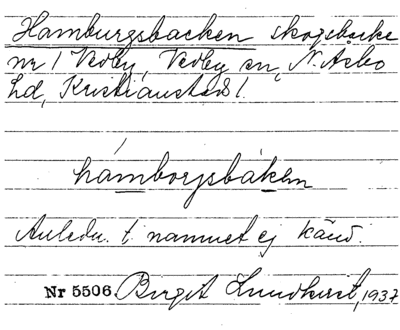 Hamburgsbacken skogsbacke
nr 1 Vedby, Vedby sn, N. Åsbo
hd, Kristianstads l.
hámborgsbákɘn
Anledn. t. namnet ej känd.
Nr 5506. Birgit Lundkvist, 1937